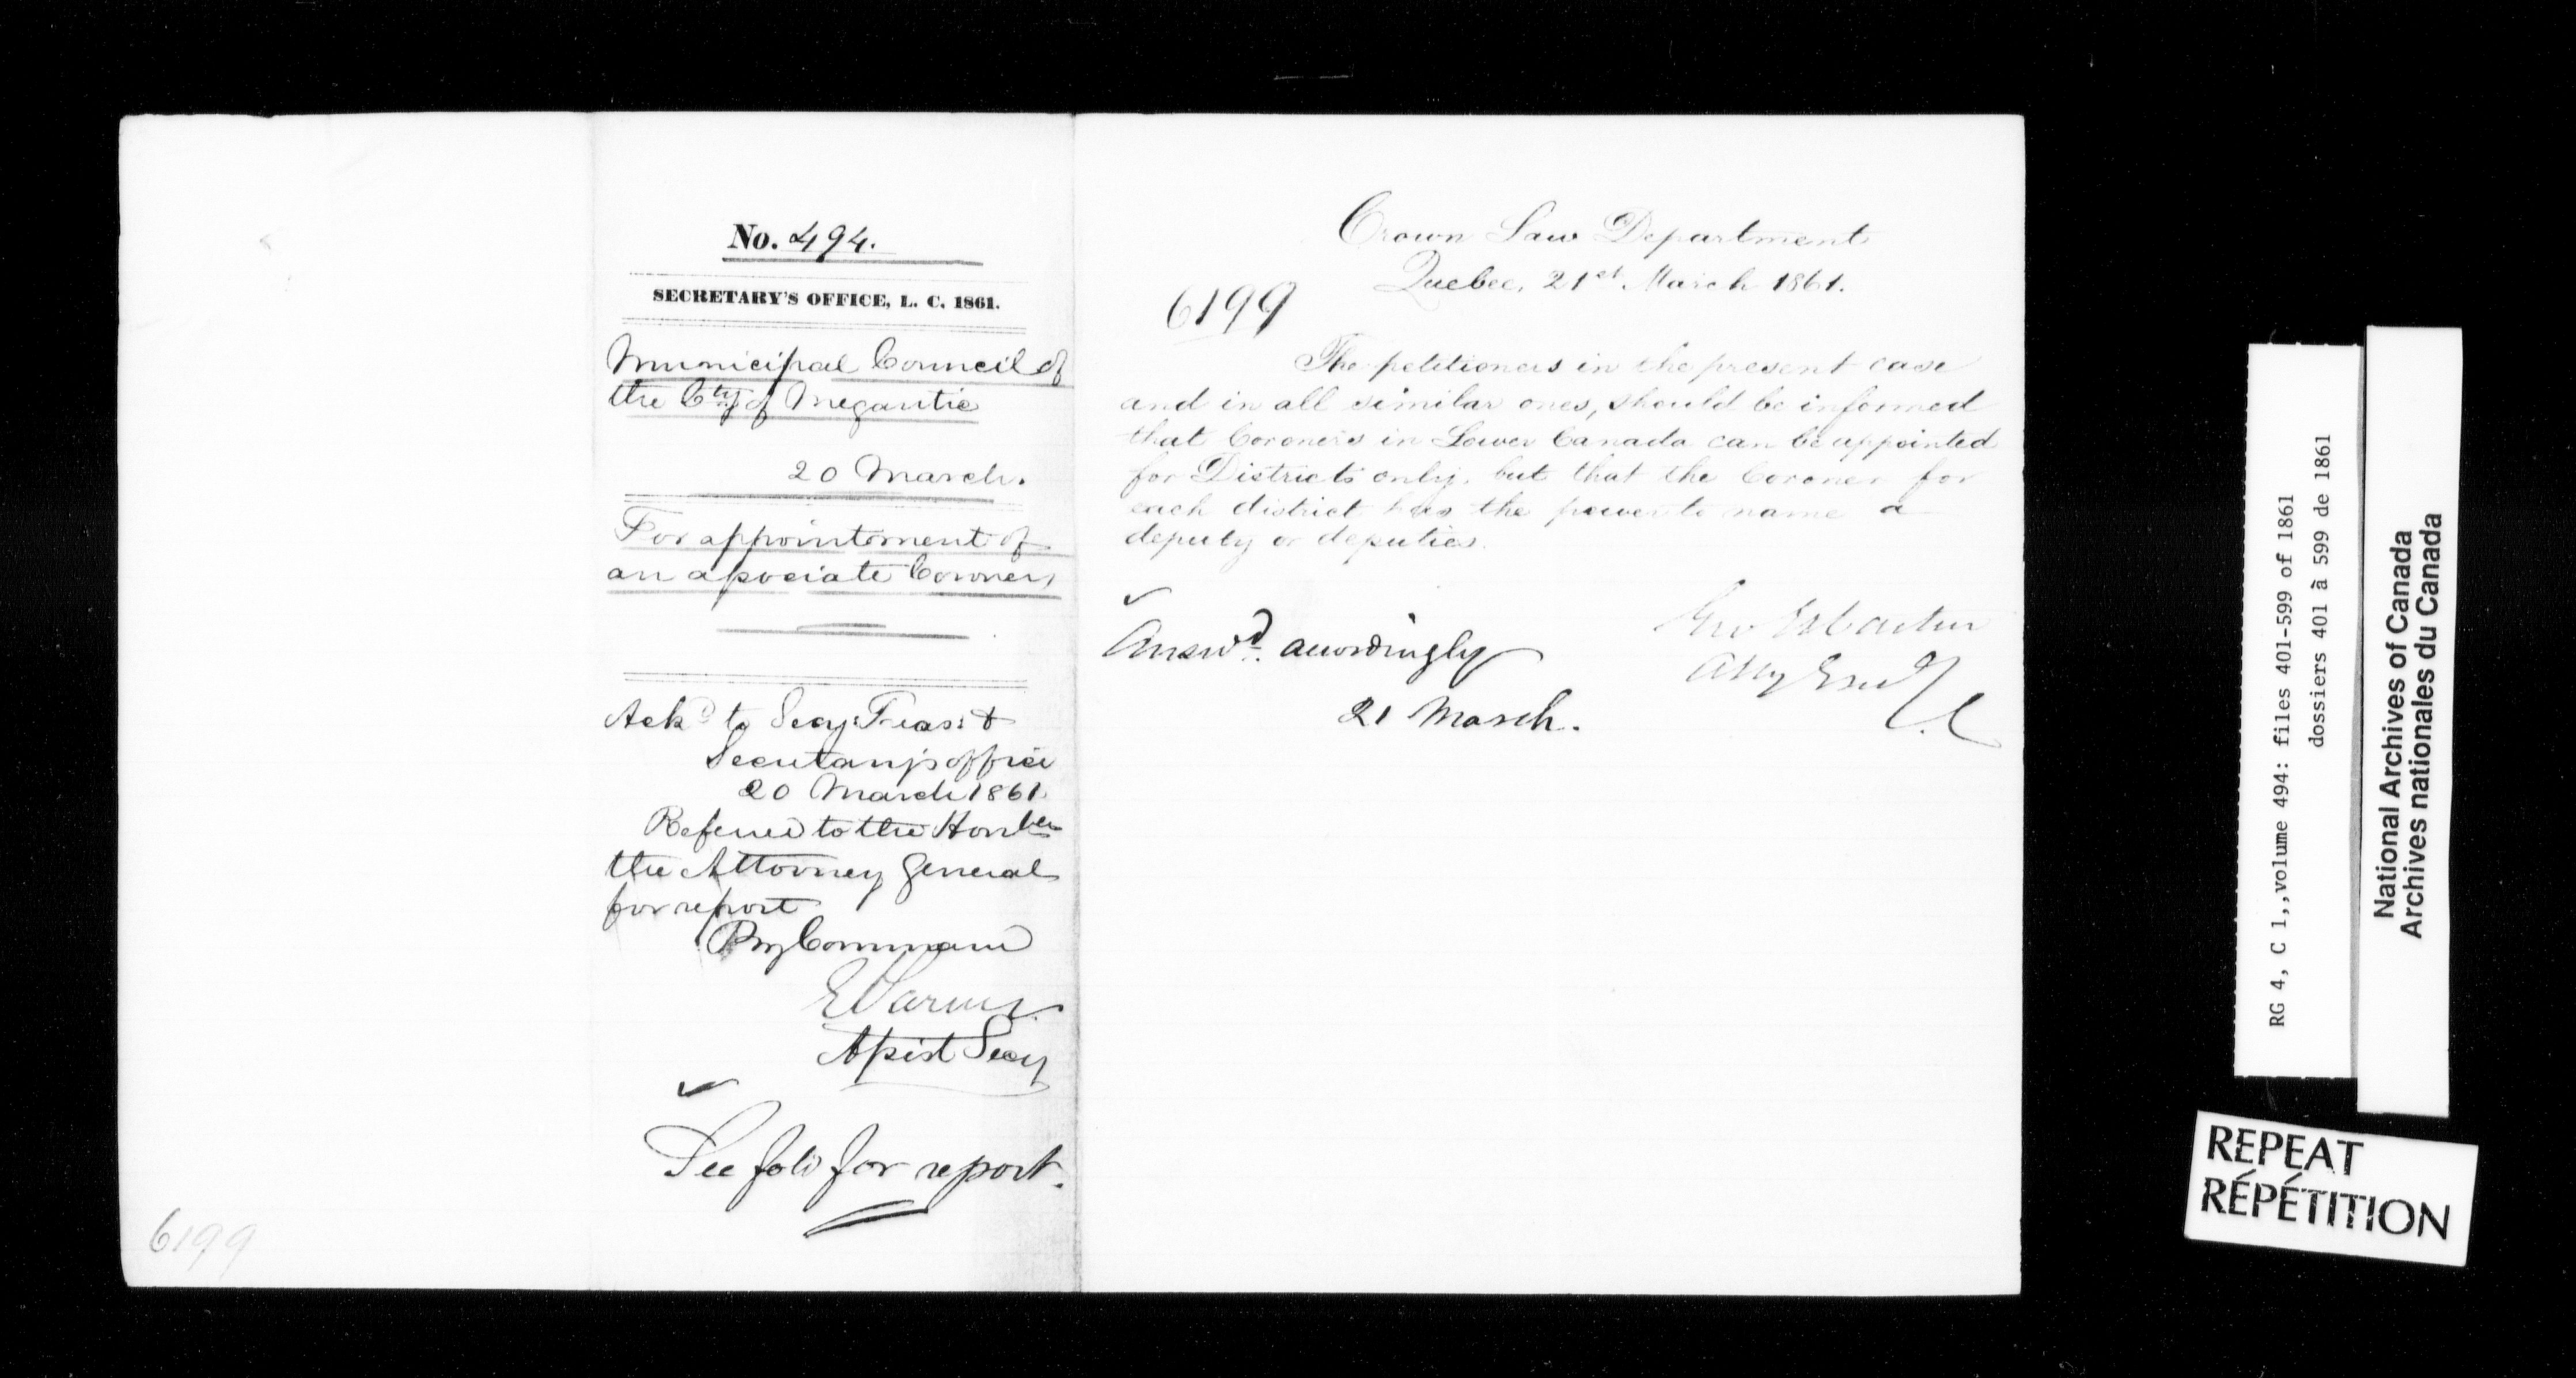 No. 494.
SECRETARY'S OFFICE, L. C. 1861.
Municipal Council of
the Cty of Megantic
20 March.
For appointment of
an associate Coroner,
Ackd to Secy Treas: &
Secretary's office
20 March 1861.
Referred to the Honble
the Attorney General
for report
By Command
E Parent
Assist Secy
See folio for report.
6199
Crown Law Department
Quebec, 21st March 1861.
6199
The petitioners in the present case
and in all similar ones, should be informed
that Coroners in Lower Canada can be appointed
for Districts only, but that the Coroner for
each district has the power to name a
deputy or deputies.
Answd. accordingly
21 March.
Geo E Cartier
Atty Genl
L. C.
RG 4, C 1,,volume 494: files 401-599 of 1861
dossiers 401 à 599 de 1861
National Archives of Canada
Archives nationales du Canada
REPEAT
RÉPÉTITION